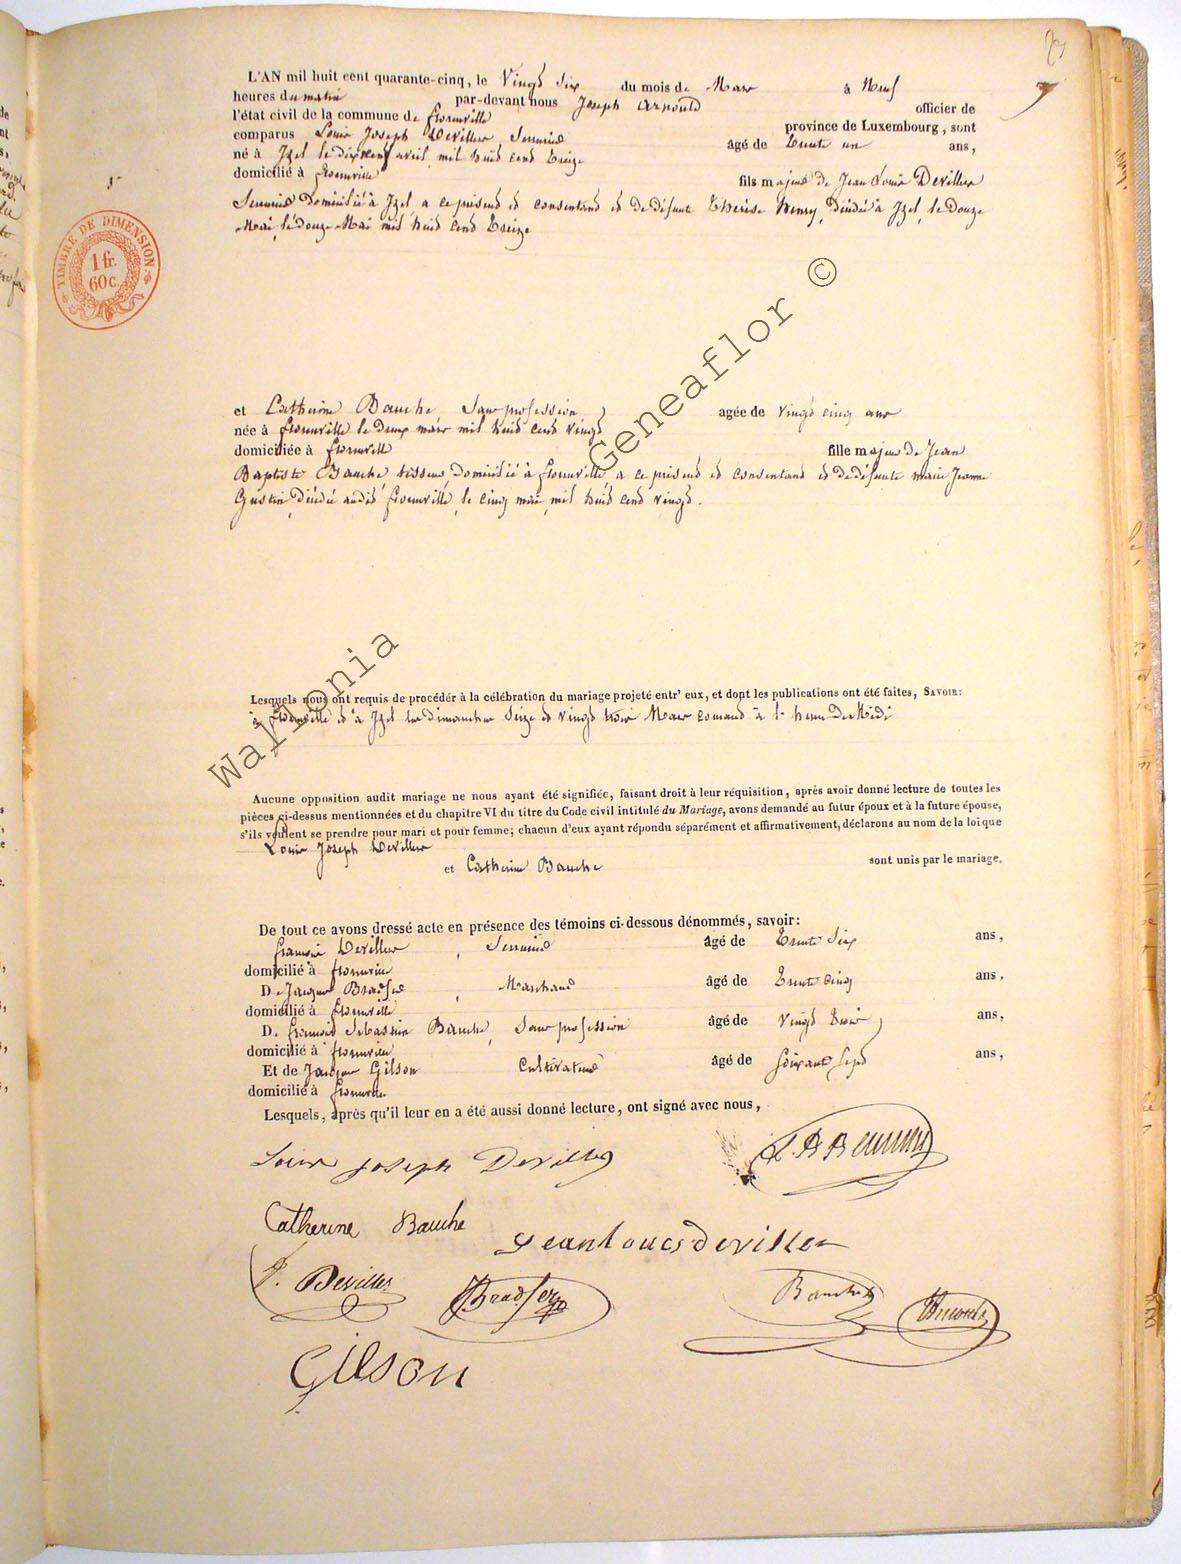 L'AN mil huit cent quarante-cinq, le Vingt Six du mois de Mars à Neuf
heures du matin par-devant nous Joseph Arnould officier de
l'état civil de la commune de Florenville province de Luxembourg, sont
comparus Louis Joseph Deviller Serrurier âgé de trente un ans,
né à Izel le dix neuf avril mil huit cent treize
domicilié à Florenville fils majeur de Jean Louis Deviller
Serrurier domicilié à Izel a ce présent et consentant et de défunt Thérèse Henry, décédée à Izel, le douze
Mai, le douze Mai mil huit cent treize
TIMBRE DE DIMENSION
1 fr.
60 c.
et Catherine Bauche, Sans profession, agée de vingt cinq ans
née à Florenville le deux mars mil huit cent vingt
domiciliée à Florenville fille majeure de Jean
Baptiste Bauche, tisseur, domicilié à Florenville, a ce présent et consentant et de défunte marie Jeanne
Gustin, décédée audit Florenville, le cinq mai, mil huit cent vingt.
Lesquels nous ont requis de procéder à la célébration du mariage projeté entr' eux, et dopt les publications ont été faites, SAVOIR:
à Florenville et à Izel les dimanches Seize et vingt trois Mars courant à l'heure de Midi
Aucune opposition audit mariage ne nous ayant été signifiée, faisant droit à leur réquisition, après avoir donné lecture de toutes les
pièces ci-dessus mentionnées et du chapitre VI du titre du Code civil intitulé du Mariage, avons demandé au futur époux et à la future épouse,
s'ils veulent se prendre pour mari et pour femme; chacun d'eux ayant répondu séparément et affirmativement, déclarons au nom de la loi que
Louis Joseph Deviller
et Catherine Bauche sont unis par le mariage.
De tout ce avons dressé acte en présence des témoins ci-dessous dénommés, savoir:
François Deviller, Serrurier âgé de trente Six ans,
domicilié à Florenville
De Jacques Bradfer, Marchand âgé de trente cinq ans,
domicilié à Florenville
De François Sébastien Bauche, Sans profession âgé de vingt trois, ans,
domicilié à Florenville
Et de Jacques Gilson Cultivateur âgé de Soixante Sept ans,
domicilié à Florenville
Lesquels, après qu'il leur en a été aussi donné lecture, ont signé avec nous,
Louis Joseph Deviller
Catherine Bauche Jean louis deviller
F. Deviller Bradfer Bauche Arnould
Gilson
Wallonia Geneaflor ©